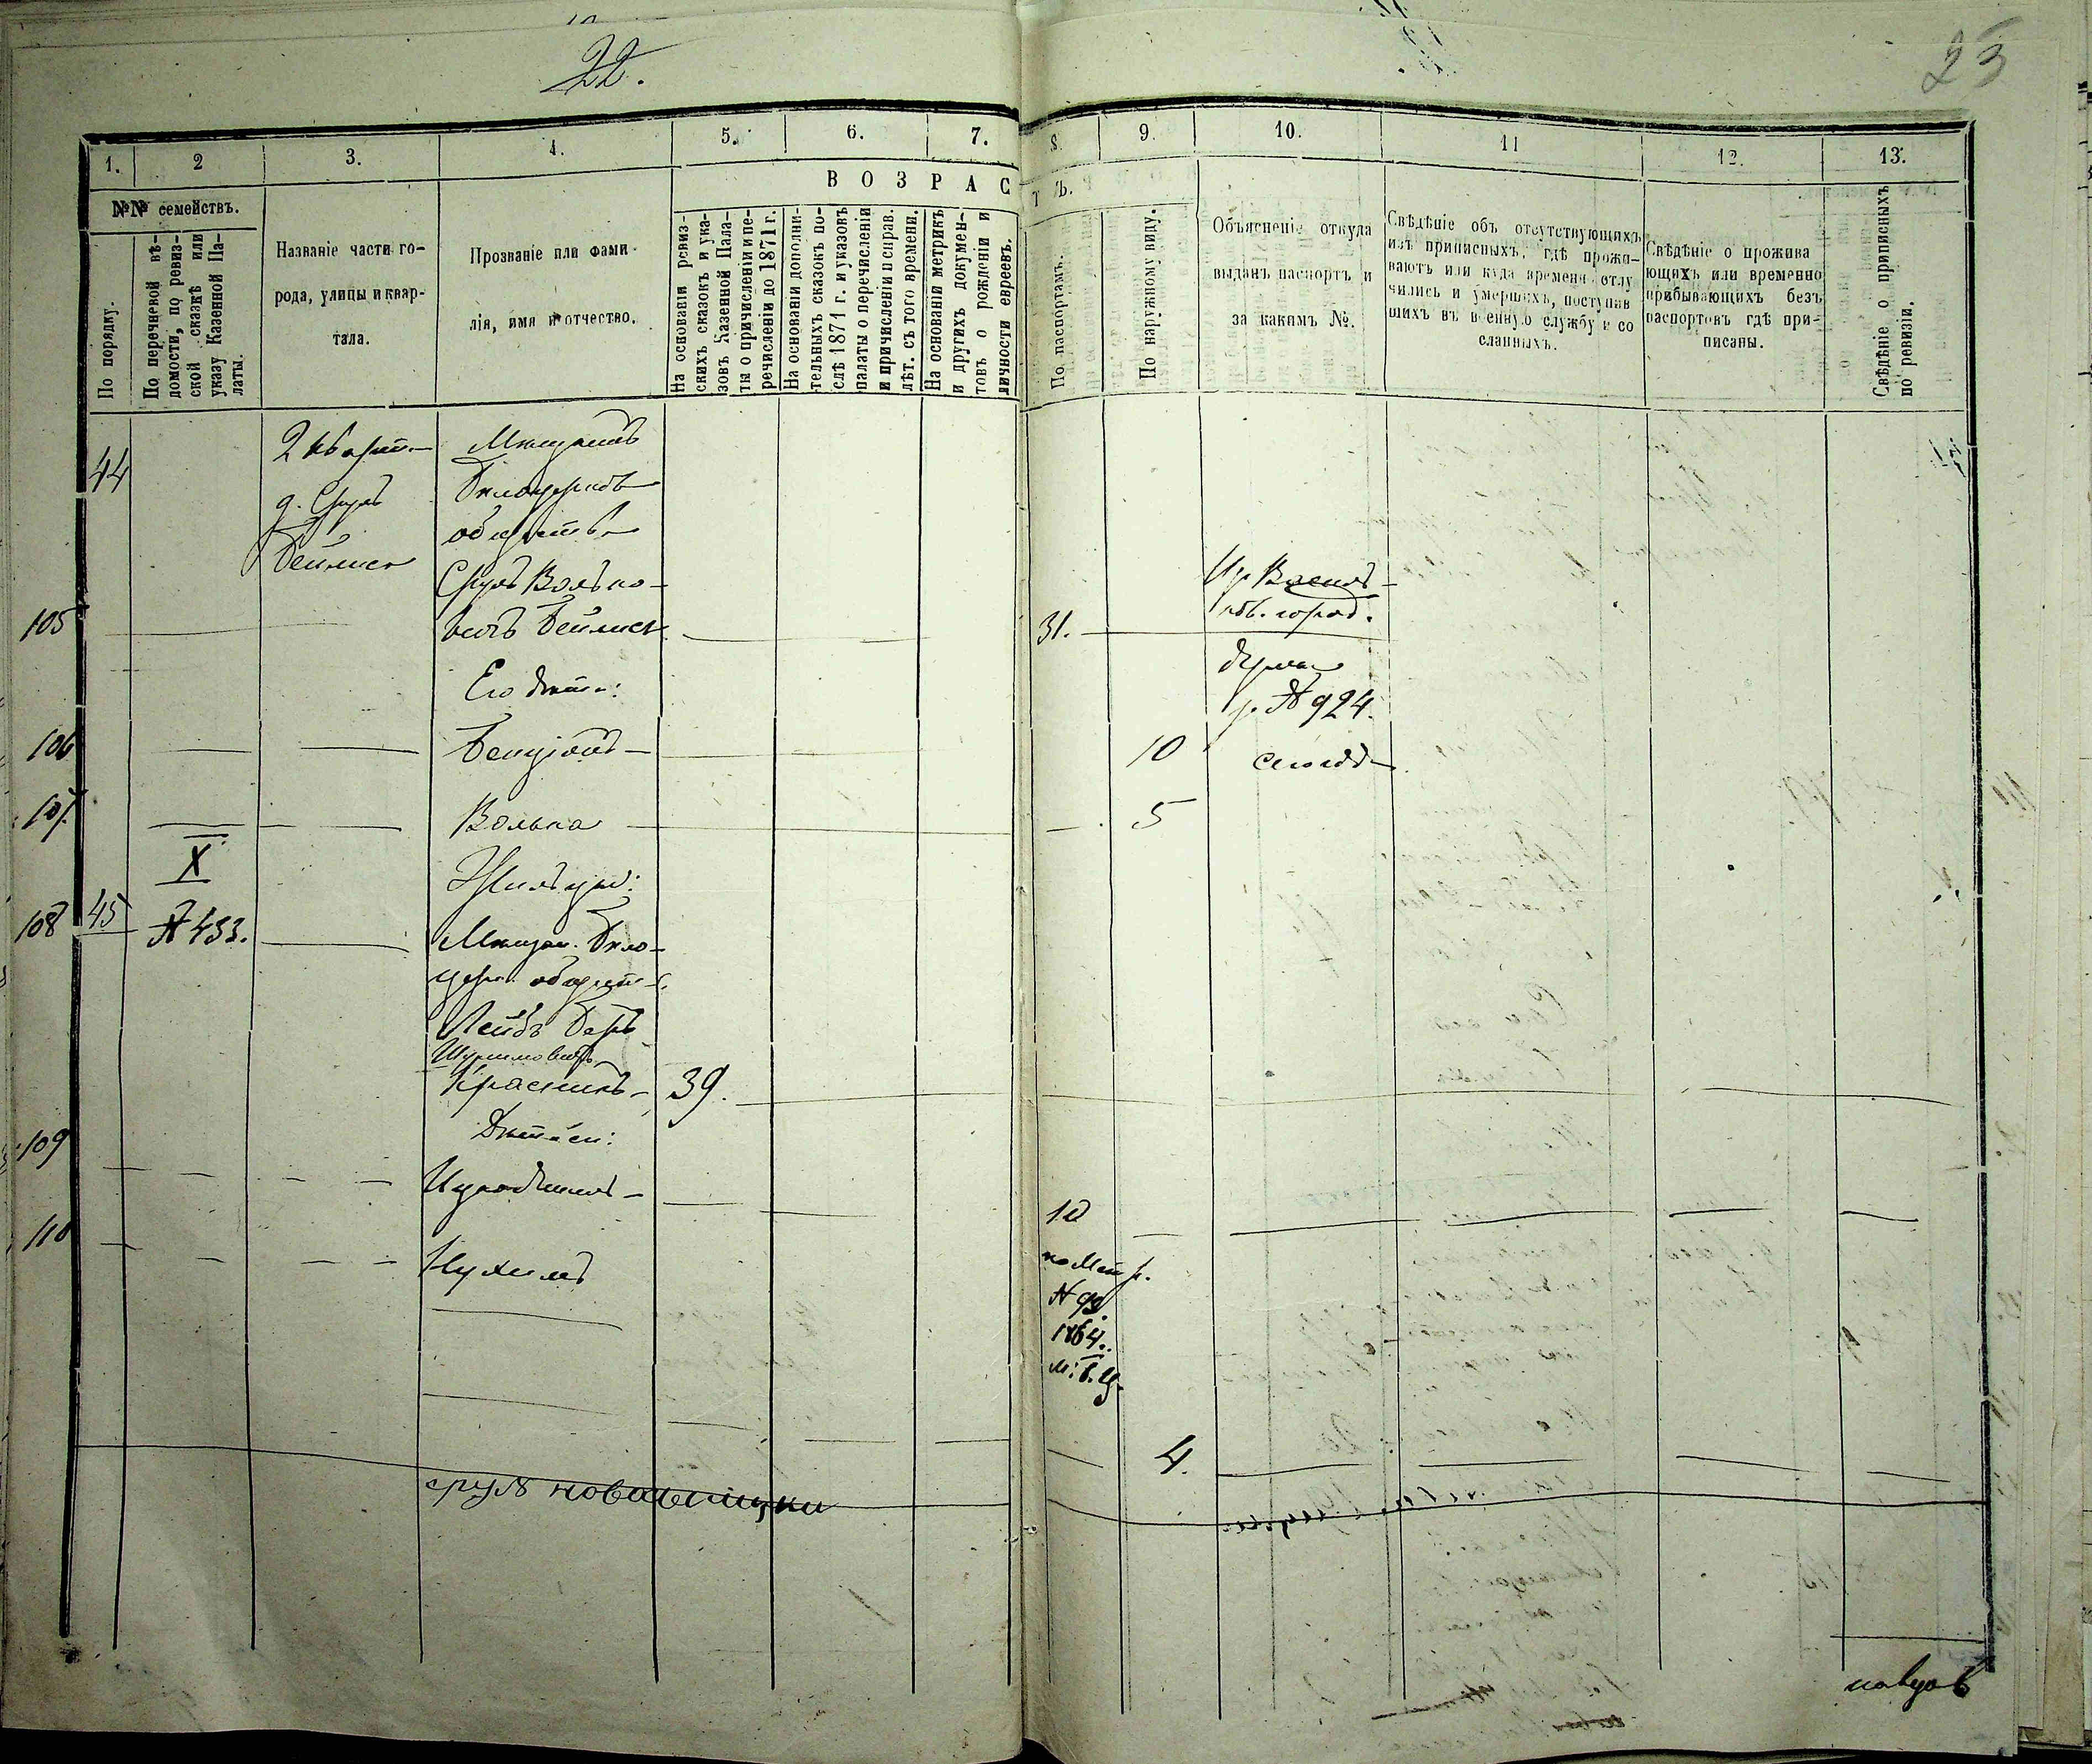 22.
23
1.
2
3.
4.
5.
6.
7.
8.
9.
10.
11
12.
13.
№№ семействъ.
По порядку.
По перечневой вѣ-
домости, по ревиз-
ской сказкѣ или
указу Казенной Па-
латы.
Названіе части го-
рода, улицы и квар-
тала.
Прозваніе или фами
лія, имя и отчество.
ВОЗРАСТЪ.
На основаніи ревиз-
скихъ сказокъ и ука-
зовъ Казенной Пала-
ты о причисленіи и пе-
речисленіи до 1871 г.
На основаніи дополни-
тельныхъ сказокъ по-
слѣ 1871 г. и указовъ
палаты о перечисленіи
и причисленіи и справ.
лѣт. съ того времени.
На основаніи метрикъ
и другихъ докумен-
товъ о рожденіи и
личности евреевъ.
По паспортамъ.
По наружному виду.
Объясненіе откуда
выданъ паспортъ и
за какимъ №.
Свѣдѣніе объ отсутствующихъ
изъ приписныхъ, гдѣ прожи-
ваютъ или куда времени отлу
чились и умершихъ, поступив
шихъ въ военную службу и со
сланныхъ.
Свѣдѣніе о прожива
ющихъ или временно
прибывающихъ безъ
паспортовъ гдѣ при-
писаны.
Свѣдѣніе о приписныхъ
по ревизіи.
44
2 кварт.
д. Сруль
Бейлиса
Мѣщанъ
Бѣлоцерковъ
обществ.
Сруль Волько-
105
вичъ Бейлисъ
31.
город.
Его дѣти:
№ 924.
106
Бенціонъ
10
107.
Волька
5
X
Жильцы:
108
45
№ 453.
Мѣщан. Бѣло-
церк. обществ.
Лейбъ Беръ
Красникъ
39.
Дѣти ей:
109
10
110
Нухимъ
по Метр.
№ 93.
1864.
м: Б. Ц.
4.
сруль